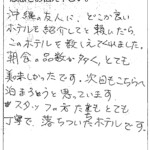 沖縄の友人に、どこか良い
ホテルを紹介してと頼んだら
このホテルを教えてくれました。
朝食の品数が多く、とても
美味しかったです。次回もこちらに
泊まろうと思っています
スタッフの方たちもとても
丁寧で、落ちついたホテルです。